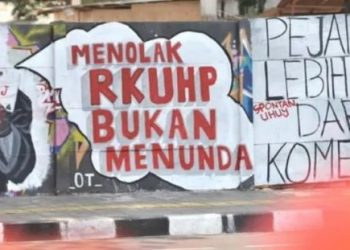 MENOLAK
RKUHP
BUKAN
MENUNDA
_OT_
PEJA
LEBIH
SPONTAN
UHUY
DA
KOME